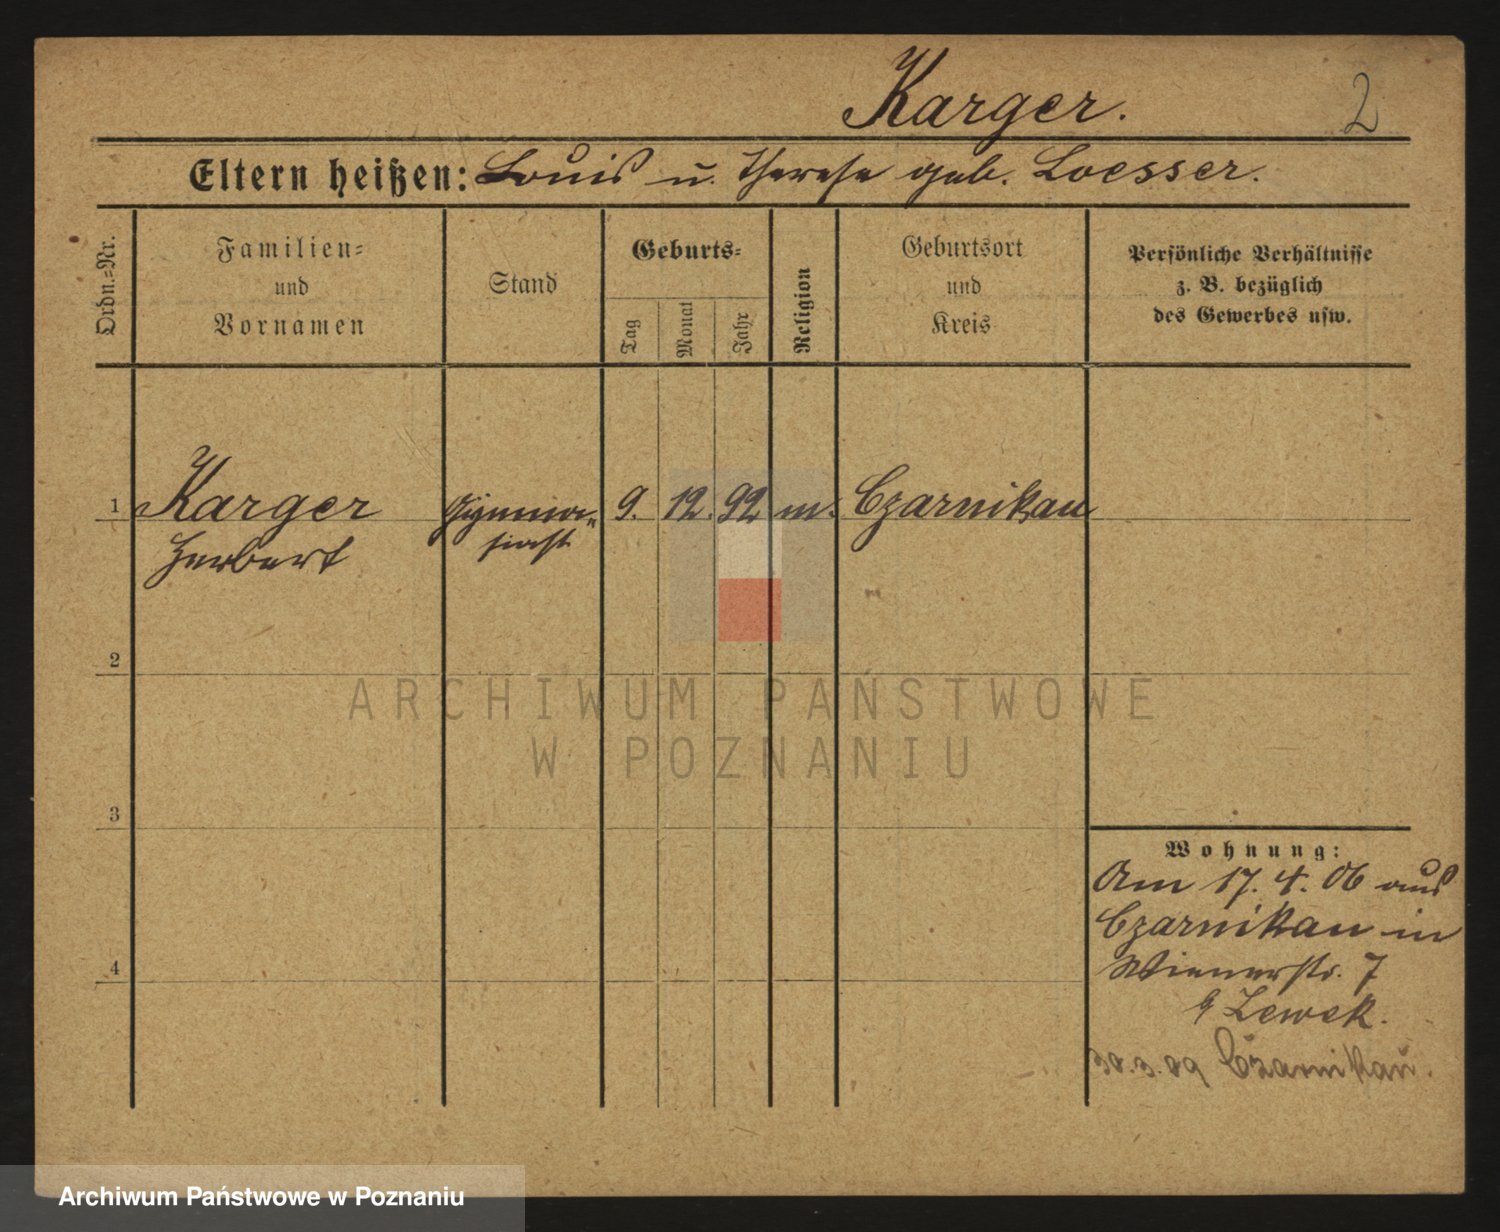 Karger.
2
Eltern heißen: Louis u. Therese geb. Loesser.
Ordn.=Nr.
Familien=
und
Vornamen
Stand
Geburts=
Tag
Monat
Jahr
Religion
Geburtsort
und
Kreis
Persönliche Verhältnisse
z. B. bezüglich
des Gewerbes usw.
1 Karger Gymna= 9. 12. 92 m. Czarnikau
Herbert siast
2
3
4
Wohnung:
Am 17. 4. 06 aus
Czarnikau in
Wienerstr. 7
b Lewek.
30.3.09 Czarnikau.
ARCHIWUM PAŃSTWOWE
W POZNANIU
Archiwum Państwowe w Poznaniu